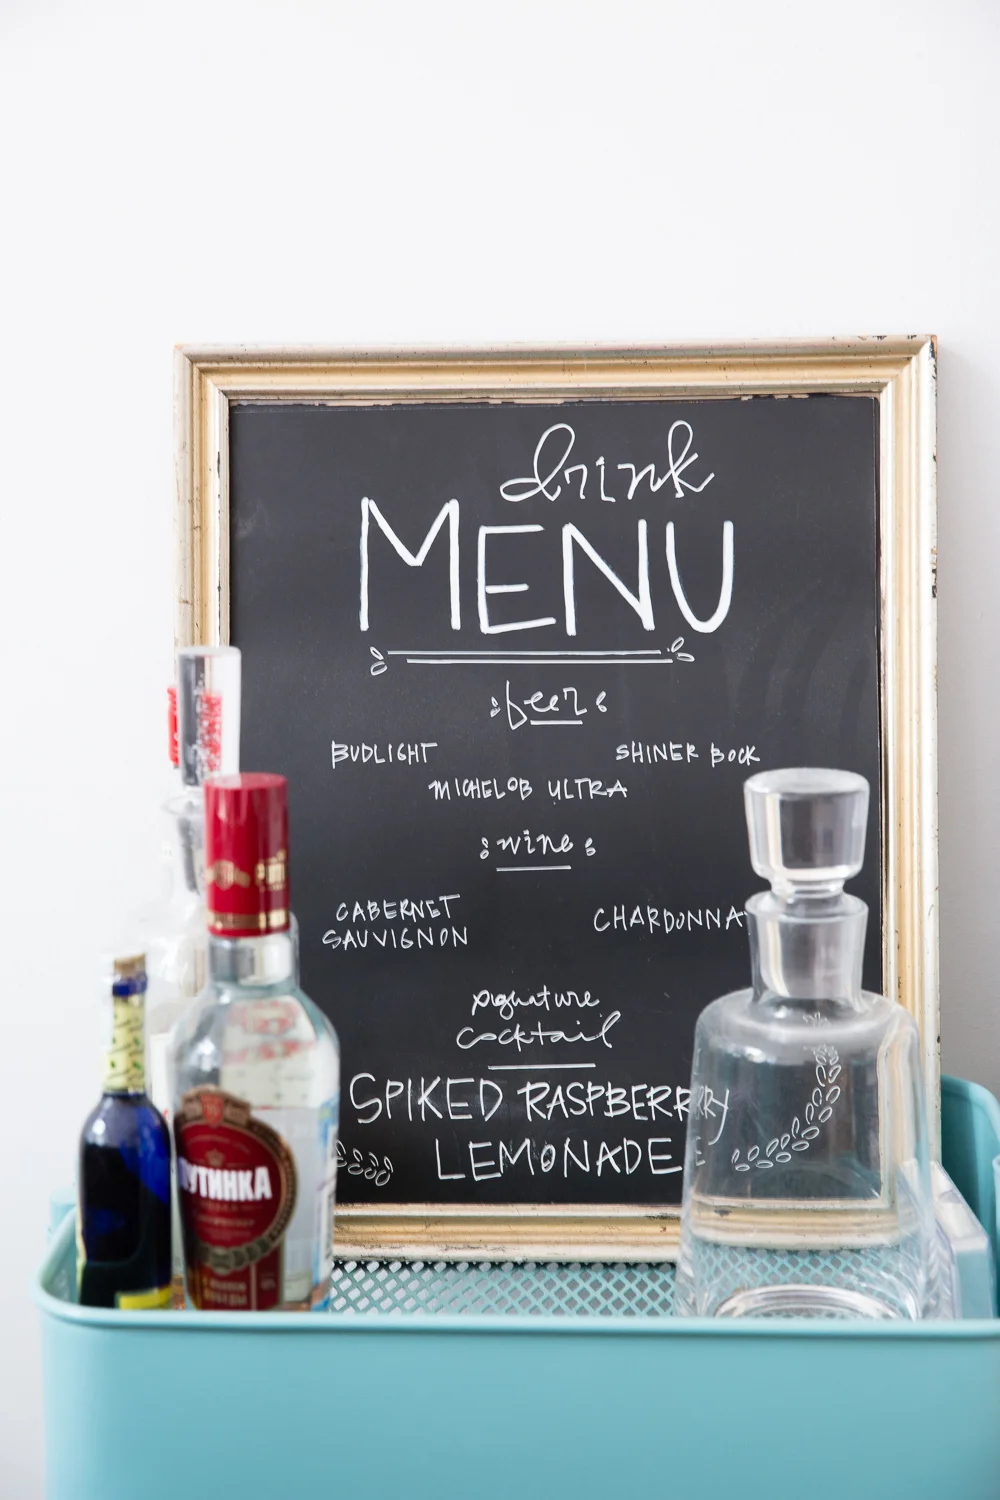 drink
MENU
beer
BUDLIGHT
SHINER BOCK
MICHELOB ULTRA
wine
CABERNET
SAUVIGNON
CHARDONNA
signature
cocktail
SPIKED RASPBERRY
LEMONADE
ПУТИНКА